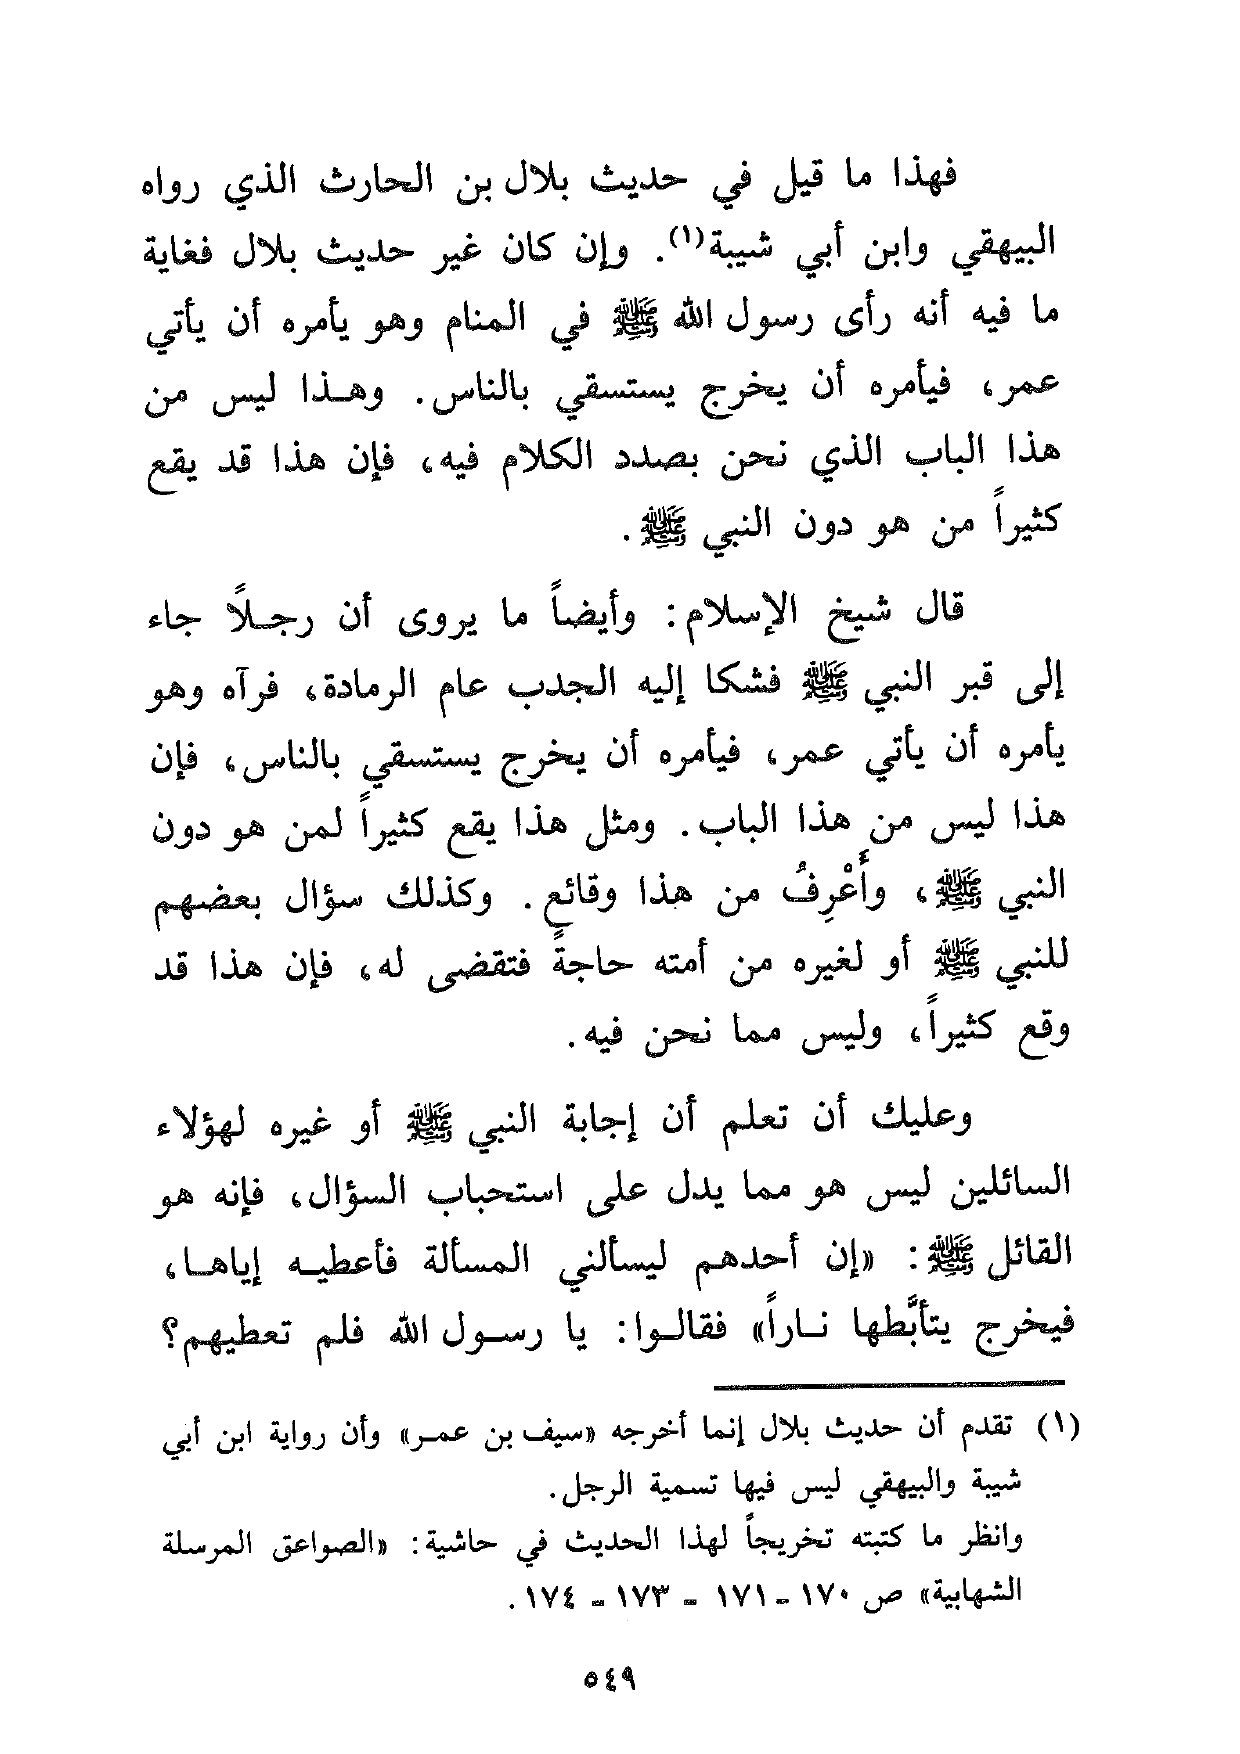 فهذا ما قيل في حديث بلال بن الحارث الذي رواه
البيهقي وابن أبي شيبة(١). وإن كان غير حديث بلال فغاية
ما فيه أنه رأى رسول الله ﷺ في المنام وهو يأمره أن يأتي
عمر، فيأمره أن يخرج يستسقي بالناس. وهـذا ليس من
هذا الباب الذي نحن بصدد الكلام فيه، فإن هذا قد يقع
كثيراً من هو دون النبي ﷺ.
قال شيخ الإسلام: وأيضاً ما يروى أن رجـلاً جاء
إلى قبر النبي ﷺ فشكا إليه الجدب عام الرمادة، فرآه وهو
يأمره أن يأتي عمر، فيأمره أن يخرج يستسقي بالناس، فإن
هذا ليس من هذا الباب. ومثل هذا يقع كثيراً لمن هو دون
النبي ﷺ، وأَعْرِفُ من هذا وقائع. وكذلك سؤال بعضهم
للنبي ﷺ أو لغيره من أمته حاجةً فتقضى له، فإن هذا قد
وقع كثيراً، وليس مما نحن فيه.
وعليك أن تعلم أن إجابة النبي ﷺ أو غيره لهؤلاء
السائلين ليس هو مما يدل على استحباب السؤال، فإنه هو
القائل ﷺ: «إن أحدهم ليسألني المسألة فأعطيـه إياهـا،
فيخرج يتأبَّطها نـاراً» فقالـوا: يا رسـول الله فلم تعطيهم؟
(١) تقدم أن حديث بلال إنما أخرجه «سيف بن عمـر» وأن رواية ابن أبي
شيبة والبيهقي ليس فيها تسمية الرجل.
وانظر ما كتبته تخريجاً لهذا الحديث في حاشية: «الصواعق المرسلة
الشهابية» ص ١٧٠ - ١٧١ - ١٧٣ - ١٧٤.
٥٤٩